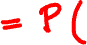 = P(